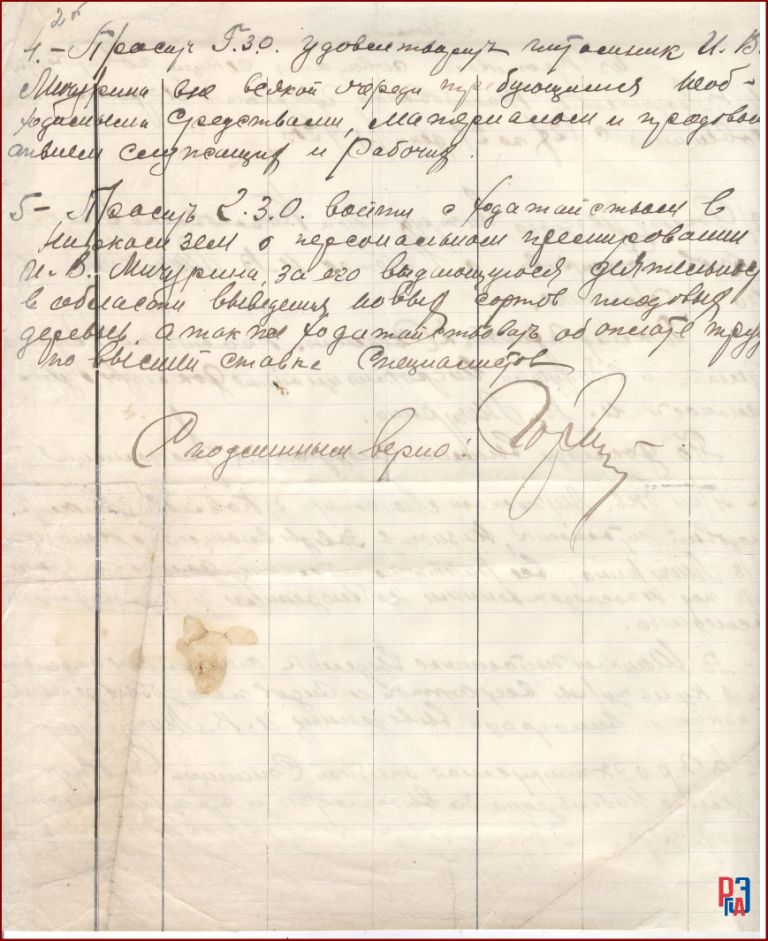 2 об
4. – Просить Г.З.О. удовлетворить питомник И. В.
Мичурина вне всякой очереди требующимися необ-
ходимыми средствами, материалом и продоволь
ствием служащих и рабочих.
5 – Просить Г.З.О. войти с ходатайством в
Наркомзем о персональном премировании
И. В. Мичурина, за его выдающуюся деятельнос
в области выведения новых сортов плодовых
деревьев, а также ходатайствовать об оплате тру
по высшей ставке специалистов
С подлинным верно:
РГАЭ